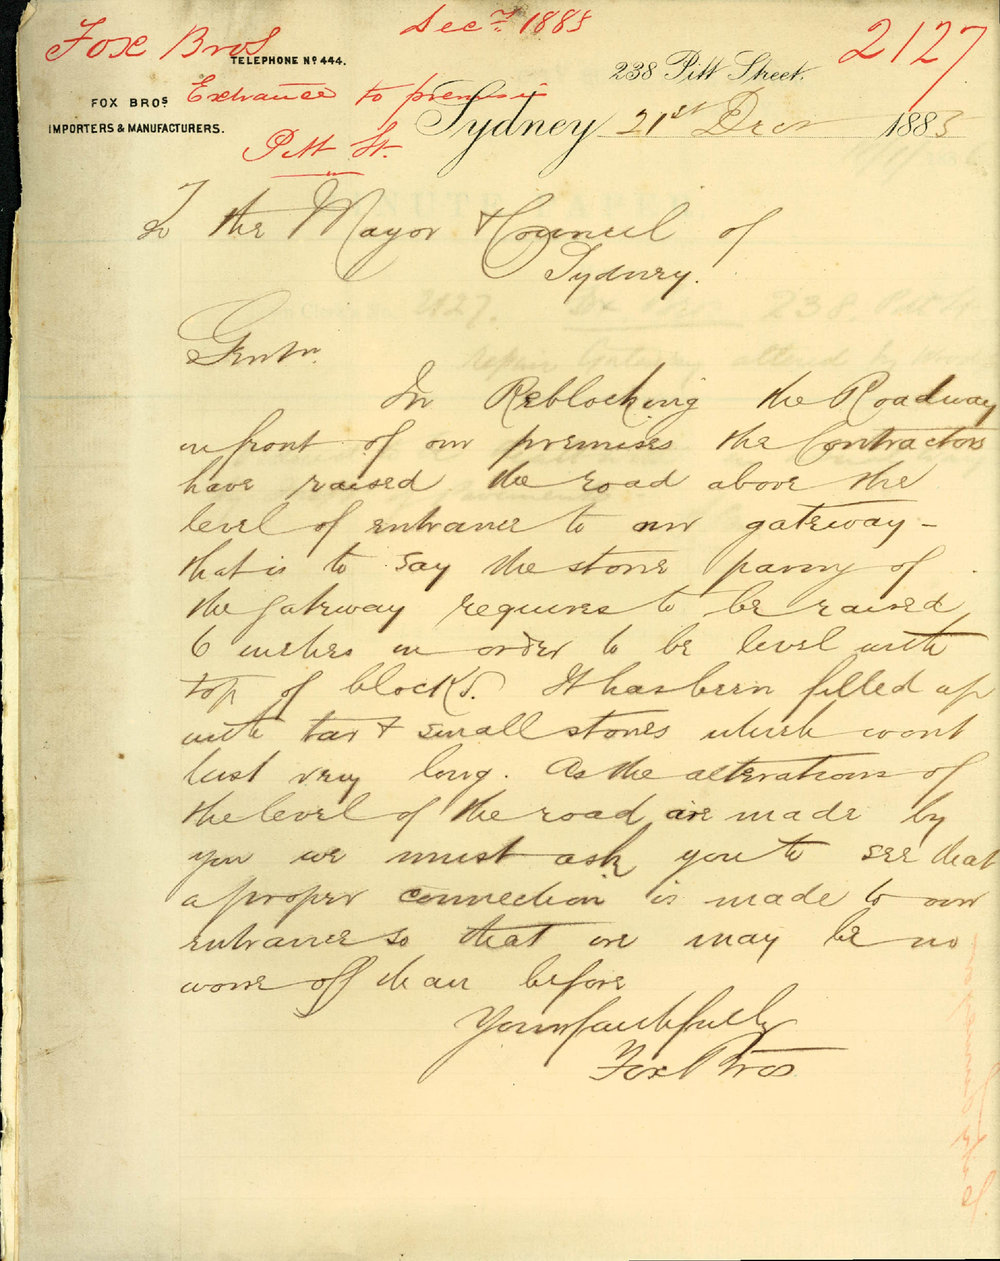 Fox Bros Decr 1883 2127
TELEPHONE No 444.
238 Pitt Street.
FOX BROs Entrance to premises
IMPORTERS & MANUFACTURERS.
Sydney 21st Decr 1883
Pitt St.
To the Mayor & Council of
Sydney.
Gentn.
In Reblocking the Roadway
in front of our premises the Contractors
have raised the road above the
level of entrance to our gateway -
that is to say the stone paving of
the gateway requires to be raised
6 inches in order to be level with
top of blocks. It has been filled up
with tar & small stones which wont
last very long. As the alterations of
the level of the road are made by
you we must ask you to see that
a proper connection is made to our
entrance so that we may be no
worse off than before
Yours faithfully
Fox Bros